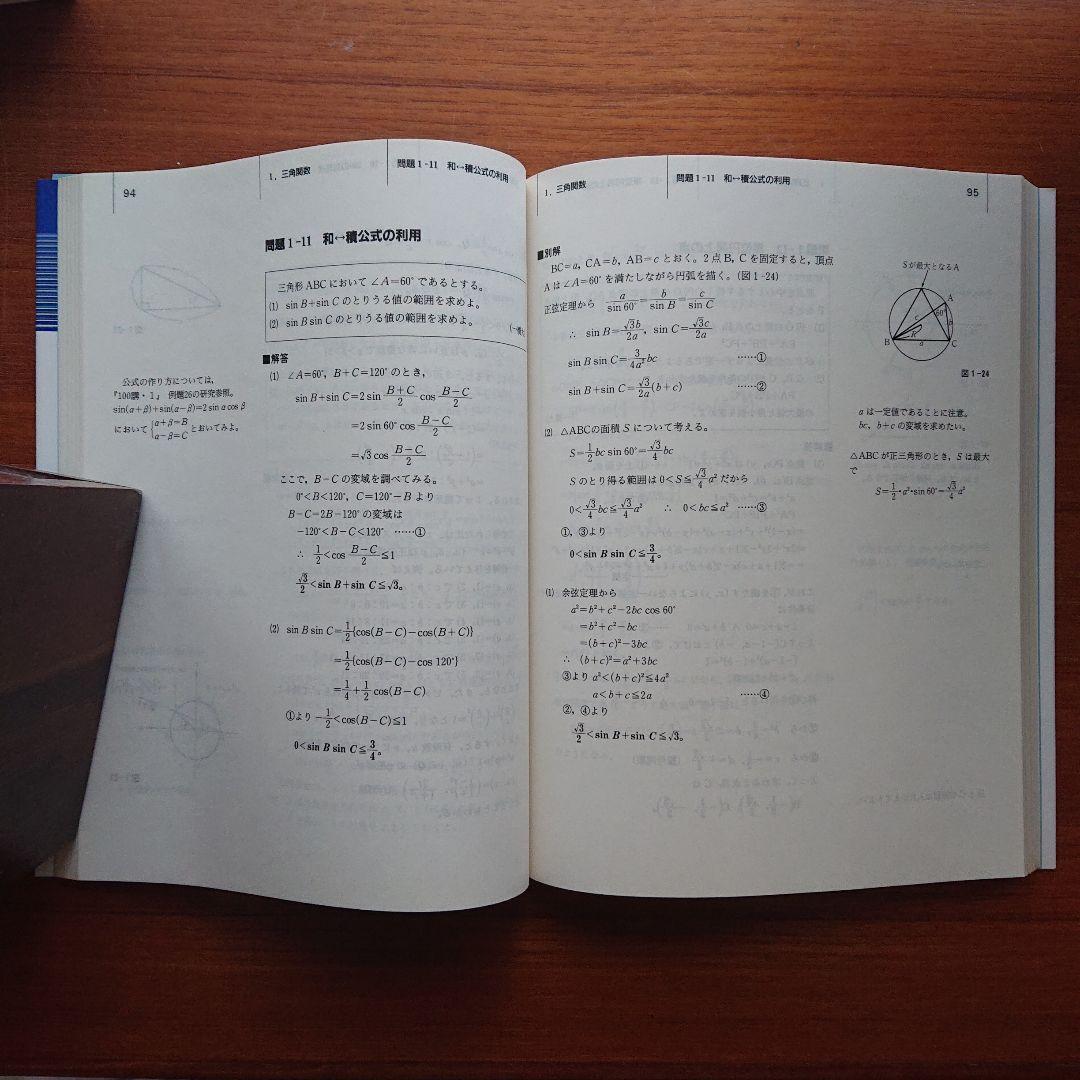 94
1. 三角関数
問題 1-11 和↔積公式の利用
問題 1-11 和↔積公式の利用
三角形 ABC において ∠A=60° であるとする。
(1) sin B+sin C のとりうる値の範囲を求めよ。
(2) sin B sin C のとりうる値の範囲を求めよ。
■解答
(1) ∠A=60°, B+C=120° のとき,
sin B+sin C=2 sin (B+C)/2 cos (B−C)/2
=2 sin 60° cos (B−C)/2
=√3 cos (B−C)/2
ここで, B−C の変域を調べてみる。
0°<B<120°, C=120°−B より
B−C=2B−120° の変域は
−120°<B−C<120° ……①
∴ 1/2<cos (B−C)/2≦1
√3/2<sin B+sin C≦√3。
(2) sin B sin C=1/2{cos(B−C)−cos(B+C)}
=1/2{cos(B−C)−cos 120°}
=1/4+1/2 cos(B−C)
①より −1/2<cos(B−C)≦1
0<sin B sin C≦3/4。
公式の作り方については,
『100講・1』 例題26の研究参照。
sin(α+β)+sin(α−β)=2 sin α cos β
において{α+β=B
α−β=C とおいてみよ。
1. 三角関数
問題 1-11 和↔積公式の利用
95
■別解
BC=a, CA=b, AB=c とおく。2点 B, C を固定すると, 頂点
A は ∠A=60° を満たしながら円弧を描く。(図 1-24)
正弦定理から a/sin 60°=b/sin B=c/sin C
∴ sin B=√3b/2a, sin C=√3c/2a
sin B sin C=3/4a² bc ……①
sin B+sin C=√3/2a(b+c) ……②
(2) △ABCの面積 S について考える。
S=1/2 bc sin 60°=√3/4 bc
S のとり得る範囲は 0<S≦√3/4 a² だから
0<√3/4 bc≦√3/4 a² ∴ 0<bc≦a² ……③
①, ③より
0<sin B sin C≦3/4。
(1) 余弦定理から
a²=b²+c²−2bc cos 60°
=b²+c²−bc
=(b+c)²−3bc
∴ (b+c)²=a²+3bc
③より a²<(b+c)²≦4a²
a<b+c≦2a ……④
②, ④より
√3/2<sin B+sin C≦√3。
Sが最大となるA
A
60°
c
b
R
B
a
C
図 1-24
a は一定値であることに注意。
bc, b+c の変域を求めたい。
△ABC が正三角形のとき, S は最大
で
S=1/2・a²・sin 60°=√3/4 a²